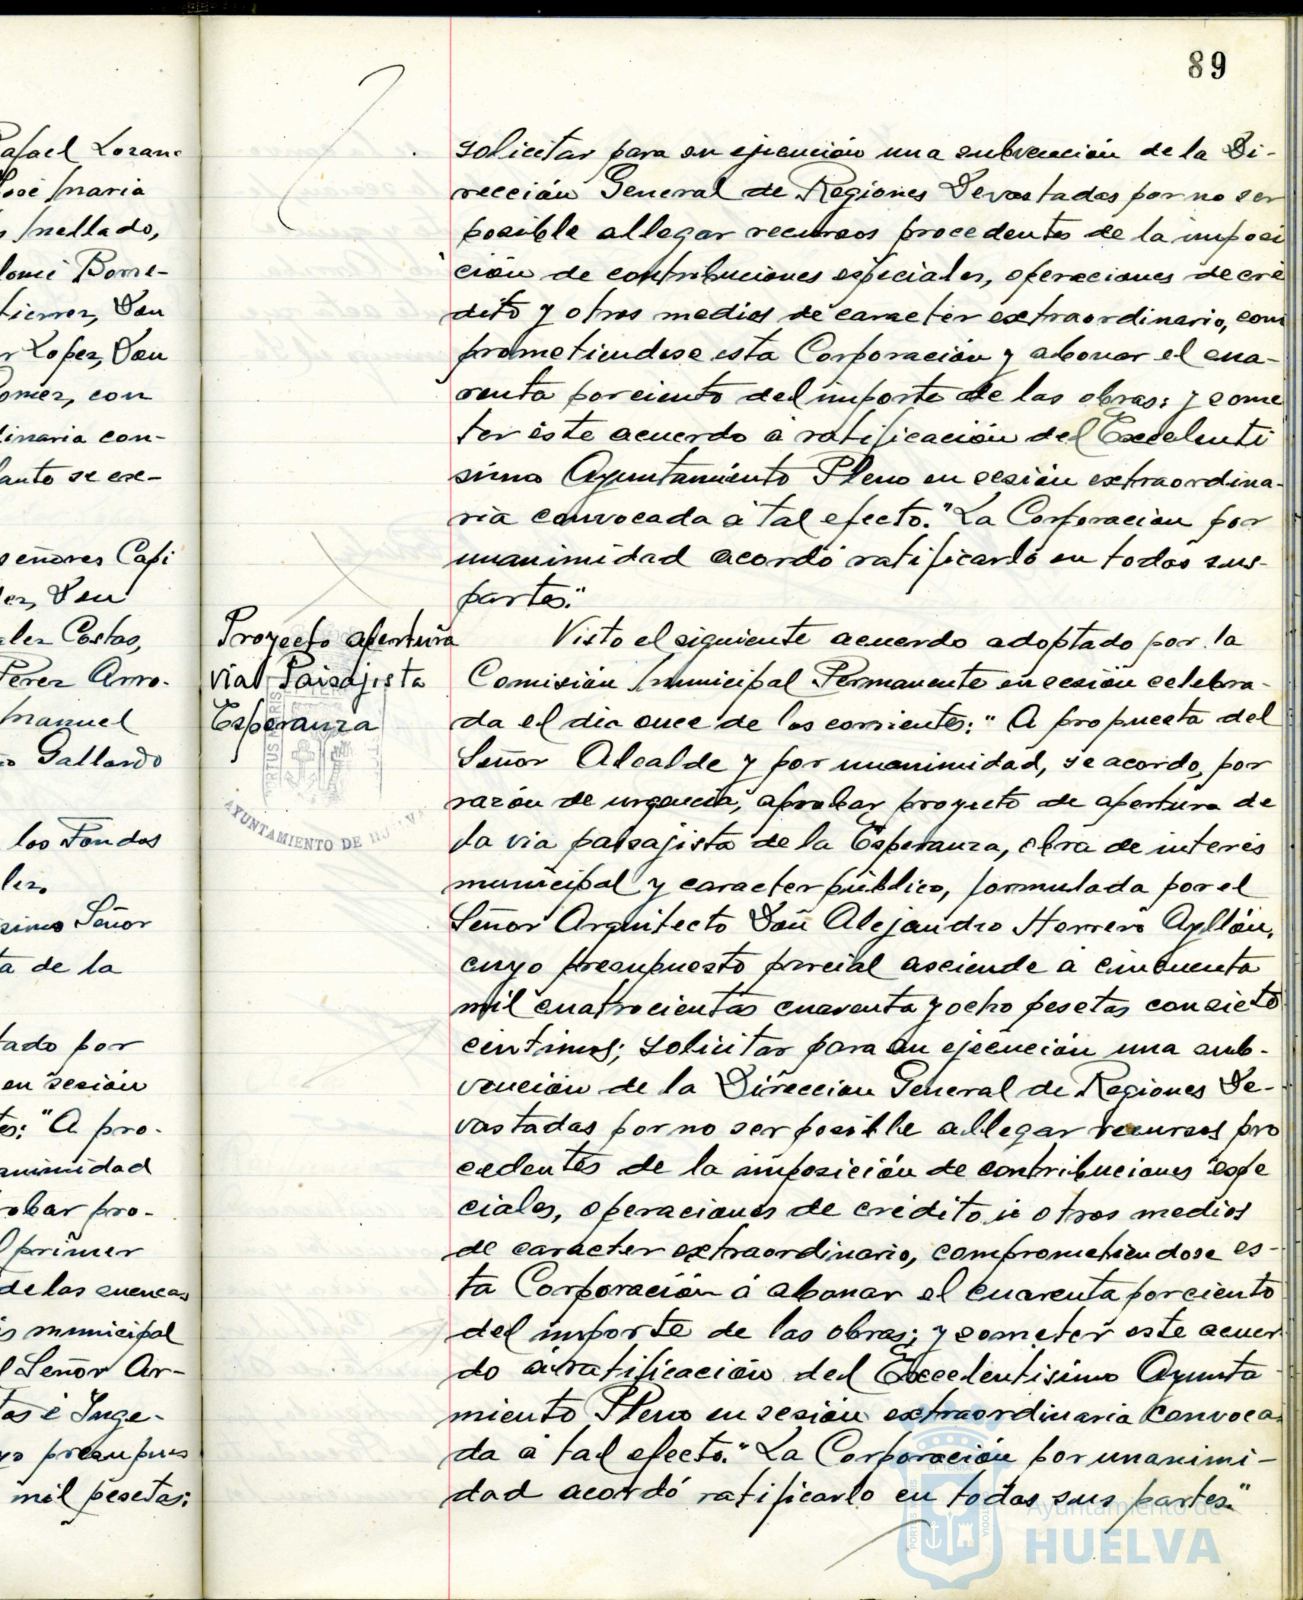 89
Rafael Lozan-
José Maria
Mellado,
lomé Borre-
tierrez, Don
r Lopez, Don
omez, con
dinaria con-
anto se ex-
señores Capi
ez, Don
alez Costas,
Perez Arro-
Manuel
Gallardo
los Fondos
lez.
simo Señor
ta de la
tado por
en sesión
tes: "A pro-
animidad
robar pro-
l primer
de las cuencas
és municipal
l Señor Ar-
tos é Inge-
yo presupues
mil pesetas;
solicitar para su ejecución una subvención de la Di-
rección General de Regiones Devastadas por no ser
posible allegar recursos procedentes de la imposi
ción de contribuciones especiales, operaciones de cré
dito y otros medios de caracter extraordinario, com
prometiendose esta Corporación y abonar el cua-
renta porciento del importe de las obras; y some
ter éste acuerdo á ratificación del Excelenti
simo Ayuntamiento Pleno en sesión extraordina-
ria convocada á tal efecto." La Corporación por
unanimidad acordó ratificarlo en todas sus-
partes."
Proyecto apertura
via Paisajista
Esperanza
AYUNTAMIENTO DE HUELVA
Visto el siguiente acuerdo adoptado por la
Comisión Municipal Permanente en sesión celebra-
da el dia once de los corrientes: "A propuesta del
Señor Alcalde y por unanimidad, se acordo, por
razón de urgencia, aprobar proyecto de apertura de
la via paisajista de la Esperanza, obra de interés
municipal y caracter público, formulada por el
Señor Arquitecto Don Alejandro Herrero Ayllón,
cuyo presupuesto parcial asciende á cincuenta
mil cuatrocientas cuarenta y ocho pesetas con siete
centimos; solicitar para su ejecución una sub-
vención de la Dirección General de Regiones De-
vastadas por no ser posible allegar recursos pro
cedentes de la imposición de contribuciones espe
ciales, operaciones de crédito ú otros medios
de caracter extraordinario, comprometiendose es-
ta Corporación á abonar el cuarenta porciento
del importe de las obras; y someter este acuer
do á ratificación del Excelentisimo Ayunta-
miento Pleno en sesión extraordinaria convoca-
da á tal efecto." La Corporación por unanimi-
dad acordó ratificarlo en todas sus partes."
Ayuntamiento de
HUELVA